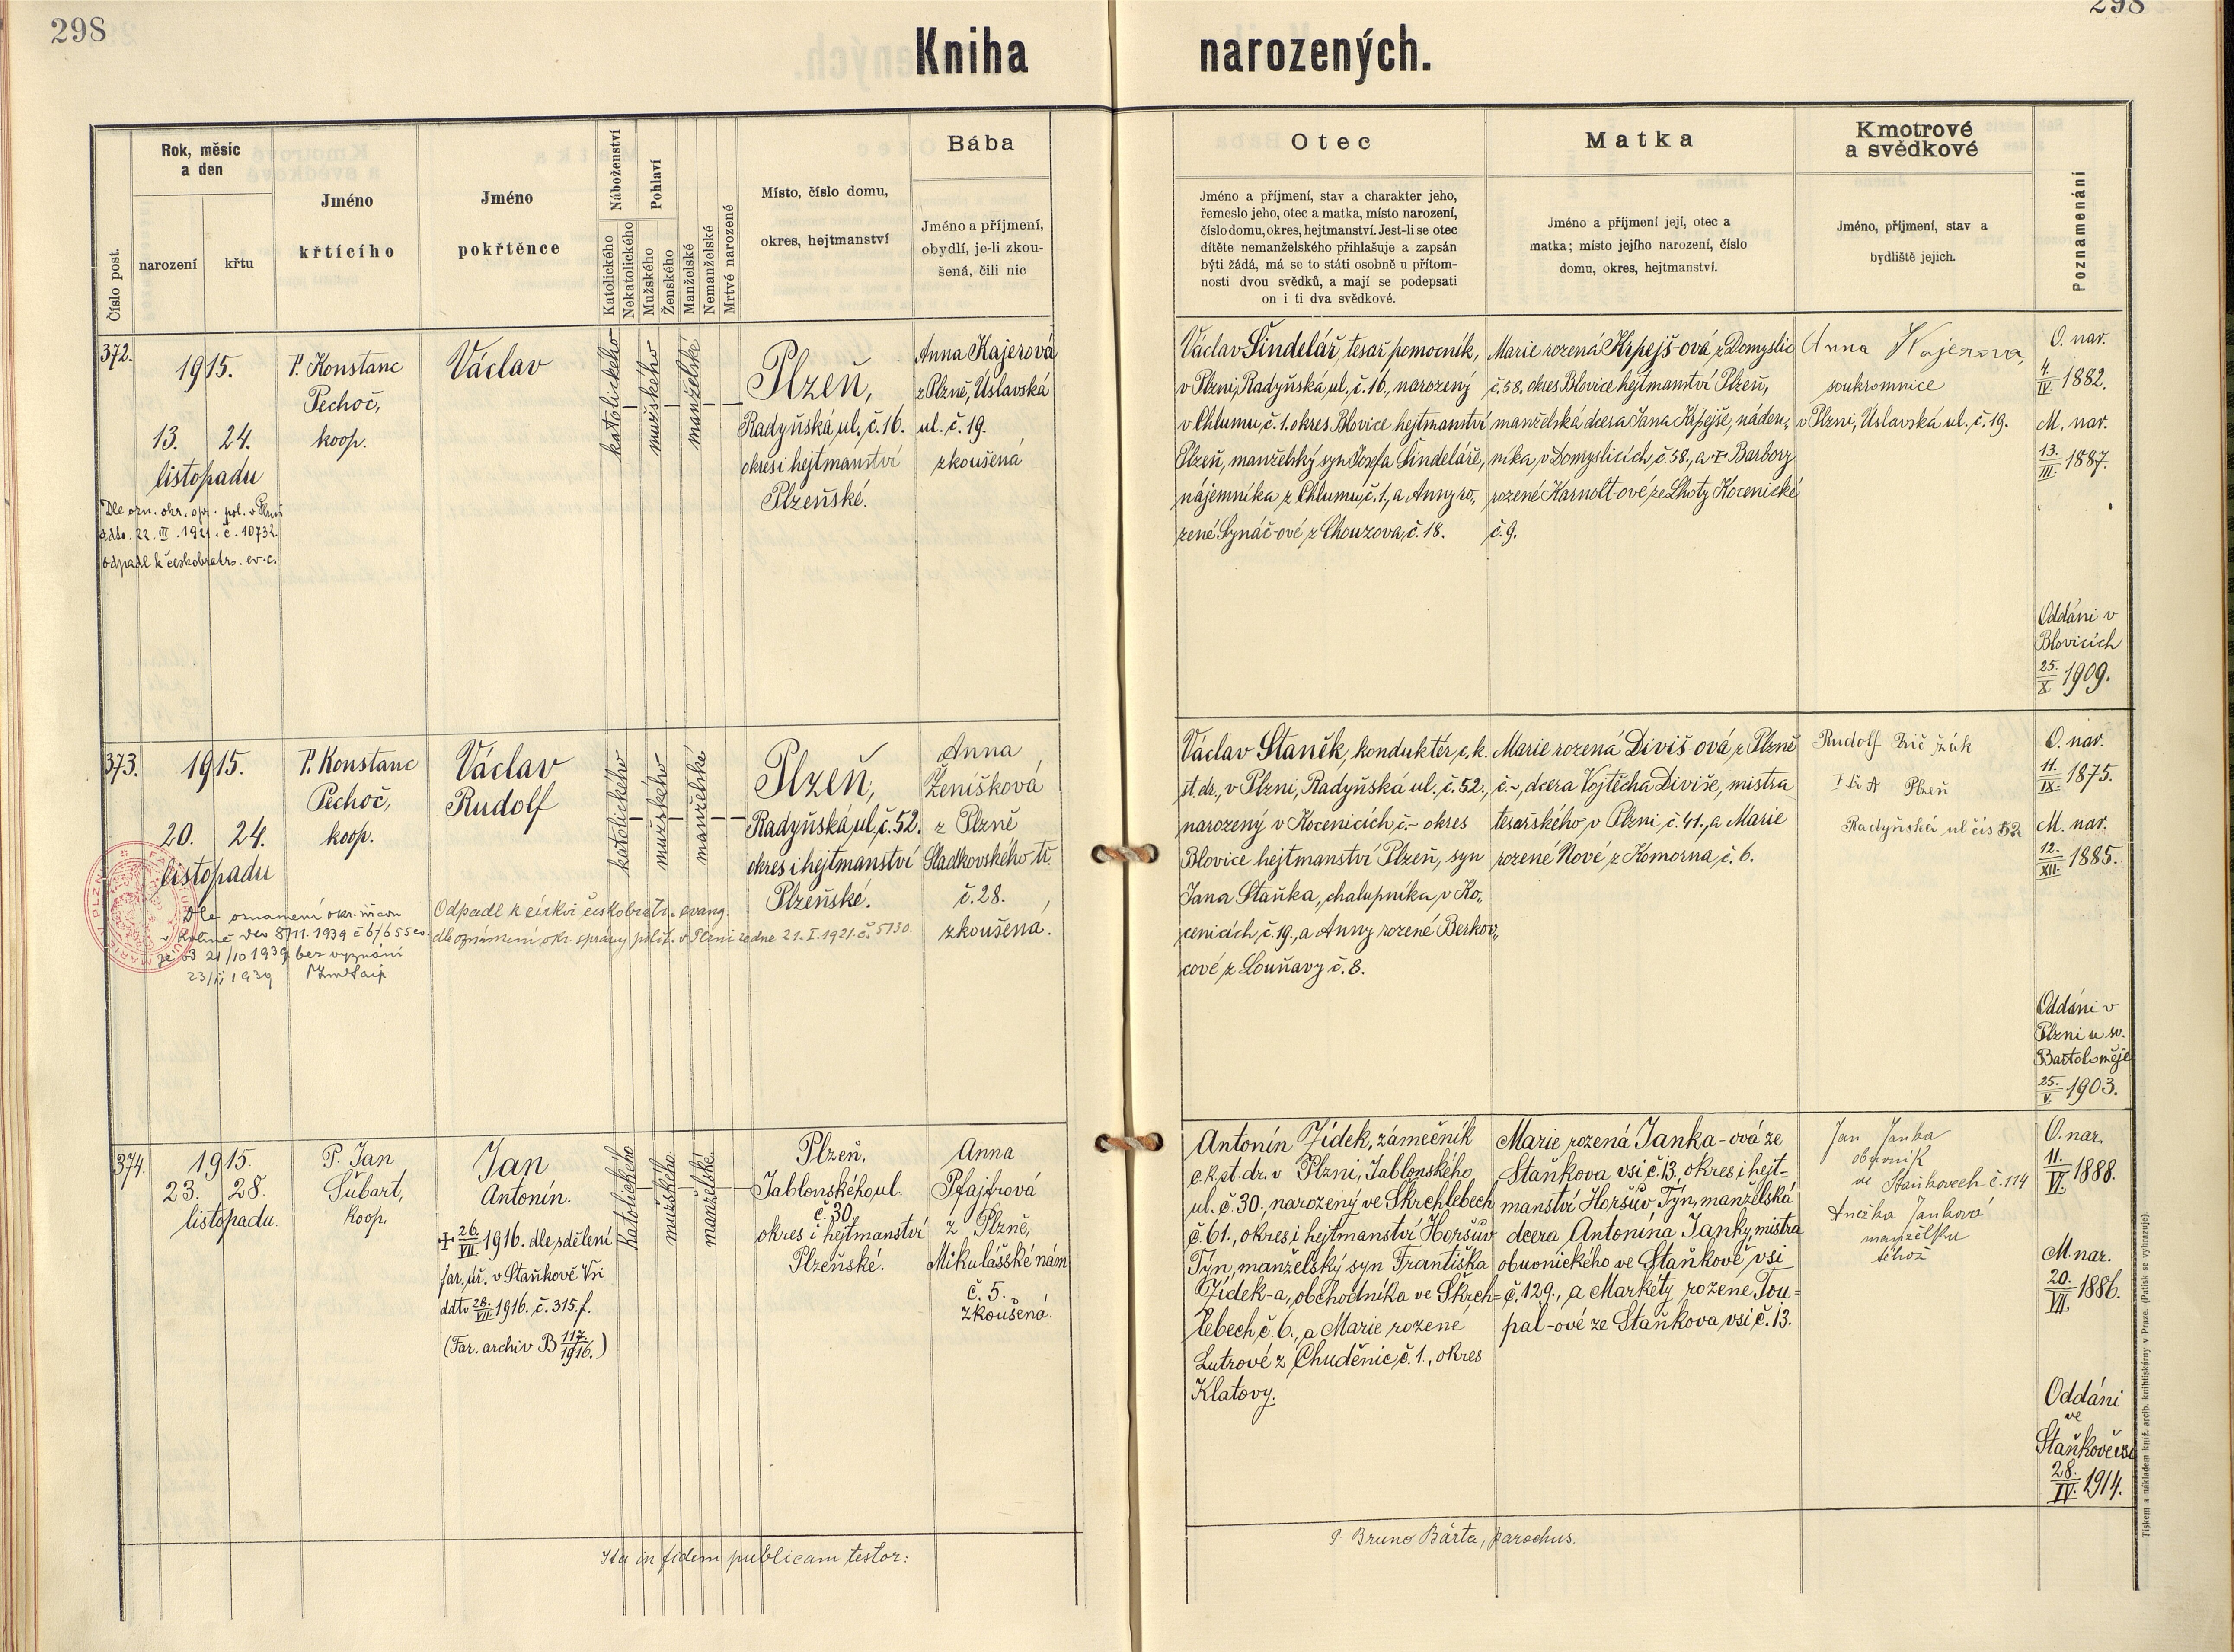 298
298
Kniha narozených.
Číslo post.
Rok, měsíc
a den
narození
křtu
Jméno
křtícího
Jméno
pokřtěnce
Náboženství
Katolického
Nekatolického
Pohlaví
Mužského
Ženského
Manželské
Nemanželské
Mrtvé narozené
Místo, číslo domu,
okres, hejtmanství
Bába
Jméno a příjmení,
obydlí, je-li zkou-
šená, čili nic
Otec
Jméno a příjmení, stav a charakter jeho,
řemeslo jeho, otec a matka, místo narození,
číslo domu, okres, hejtmanství. Jest-li se otec
dítěte nemanželského přihlašuje a zapsán
býti žádá, má se to státi osobně u přítom-
nosti dvou svědků, a mají se podepsati
on i ti dva svědkové.
Matka
Jméno a příjmení její, otec a
matka; místo jejího narození, číslo
domu, okres, hejtmanství.
Kmotrové
a svědkové
Jméno, příjmení, stav a
bydliště jejich.
Poznamenání
372.
1915.
13. 24.
listopadu
Dle ozn. okr. spr. pol. v Plzni
ddto. 22. III. 1921. č. 10732.
odpadl k českobratrs. ev. c.
P. Konstanc
Pechoč,
koop.
Václav
katolického
mužského
manželské
Plzeň,
Radyňská ul. č. 16.
okres i hejtmanství
Plzeňské.
Anna Kajerová
z Plzně, Úslavská
ul. č. 19.
zkoušená
Václav Šindelář, tesař pomocník,
v Plzni, Radyňská ul. č. 16, narozený
v Chlumu, č. 1. okres Blovice hejtmanství
Plzeň, manželský syn Josefa Šindeláře,
nájemníka z Chlumu, č. 1, a Anny ro„
zené Synáč-ové z Chouzova, č. 18.
Marie rozená Krpejš-ová z Domyslic
č. 58. okres Blovice hejtmanství Plzeň,
manželská dcera Jana Krpejše, náden„
níka, v Domyslicích, č. 58., a † Barbory
rozené Karnolt-ové ze Lhoty Kocenické
č. 9.
Anna Kajerova,
soukromnice
v Plzni, Úslavská ul. č. 19.
O. nar.
4./IV. 1882.
M. nar.
13./III. 1887.
Oddáni v
Blovicích
25./X. 1909.
373.
1915.
20. 24.
listopadu
Dle oznámení okr.
v
ze 21/10 1939 bez vyznání
P. Konstanc
Pechoč,
koop.
Václav
Rudolf
Odpadl k církvi českobratr. evang.
dle oznámení okr. správy polit. v Plzni ze dne 21. I. 1921. č. 5130.
katolického
mužského
manželské
Plzeň,
Radyňská ul, č. 52.
okres i hejtmanství
Plzeňské.
Anna
Ženíšková
z Plzně
Sladkovského tř.
č. 28.
zkoušená.
Václav Staněk, konduktér c. k.
st. dr., v Plzni, Radyňská ul. č. 52.,
narozený v Kocenicích č. – okres
Blovice hejtmanství Plzeň, syn
Jana Staňka, chalupníka v Ko„
cenicích, č. 19., a Anny rozené Berkov„
cové z Louňavy č. 8.
Marie rozená Diviš-ová z Plzně
č. –, dcera Vojtěcha Diviše, mistra
tesařského v Plzni č. 41., a Marie
rozené Nové z Komorna, č. 6.
Rudolf žák
Plzeň
Radyňská ul čís 52
O. nar.
11./IX. 1875.
M. nar.
12./XII. 1885.
Oddáni v
Plzni u sv.
Bartoloměje
25./V. 1903.
374.
1915.
23. 28.
listopadu.
P. Jan
Šubart,
koop.
Jan
Antonín.
† 26./VII. 1916. dle sdělení
far. úř. v Staňkově Vsi
ddto 28./VII. 1916. č. 315. f.
(Far. archiv B 117./1916.)
katolického
mužského
manželské
Plzeň,
Jablonského, ul.
č. 30.
okres i hejtmanství
Plzeňské.
Anna
Pfajfrová
z Plzně,
Mikulášské nám
č. 5.
zkoušená.
Antonín Jídek, zámečník
c. k. st. dr. v Plzni, Jablonského
ul. č. 30., narozený ve Škrchlebech
č. 61., okres i hejtmanství Horšův
Týn, manželský syn Františka
Jídek-a, obchodníka ve Škrch=
lebech č. 6., a Marie rozené
Lutrové z Chuděnic č. 1., okres
Klatovy.
Marie rozená Janka-ová ze
Staňkova vsi č. 13, okres i hejt-
manství Horšův Týn, manželská
dcera Antonína Janky, mistra
obuvnického ve Staňkově vsi
č. 129., a Markéty rozené Tou=
pal-ové ze Staňkova, vsi č. 13.
Jan Janka
obuvník
ve Staňkovech č. 114
Anežka Janková
manželka
téhož
O. nar.
11./VI. 1888.
M. nar.
20./VII. 1886.
Oddáni
ve
Staňkově vsi
28./IV. 1914.
Ita in fidem publicam testor:
P. Bruno Bárta, parochus.
Tiskem a nákladem kníž. arcib. knihtiskárny v Praze. (Patisk se vyhrazuje).